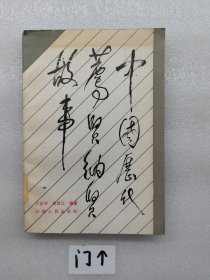 中国历代
荐贤纳贤
故事
编著
河南人民出版社
门个